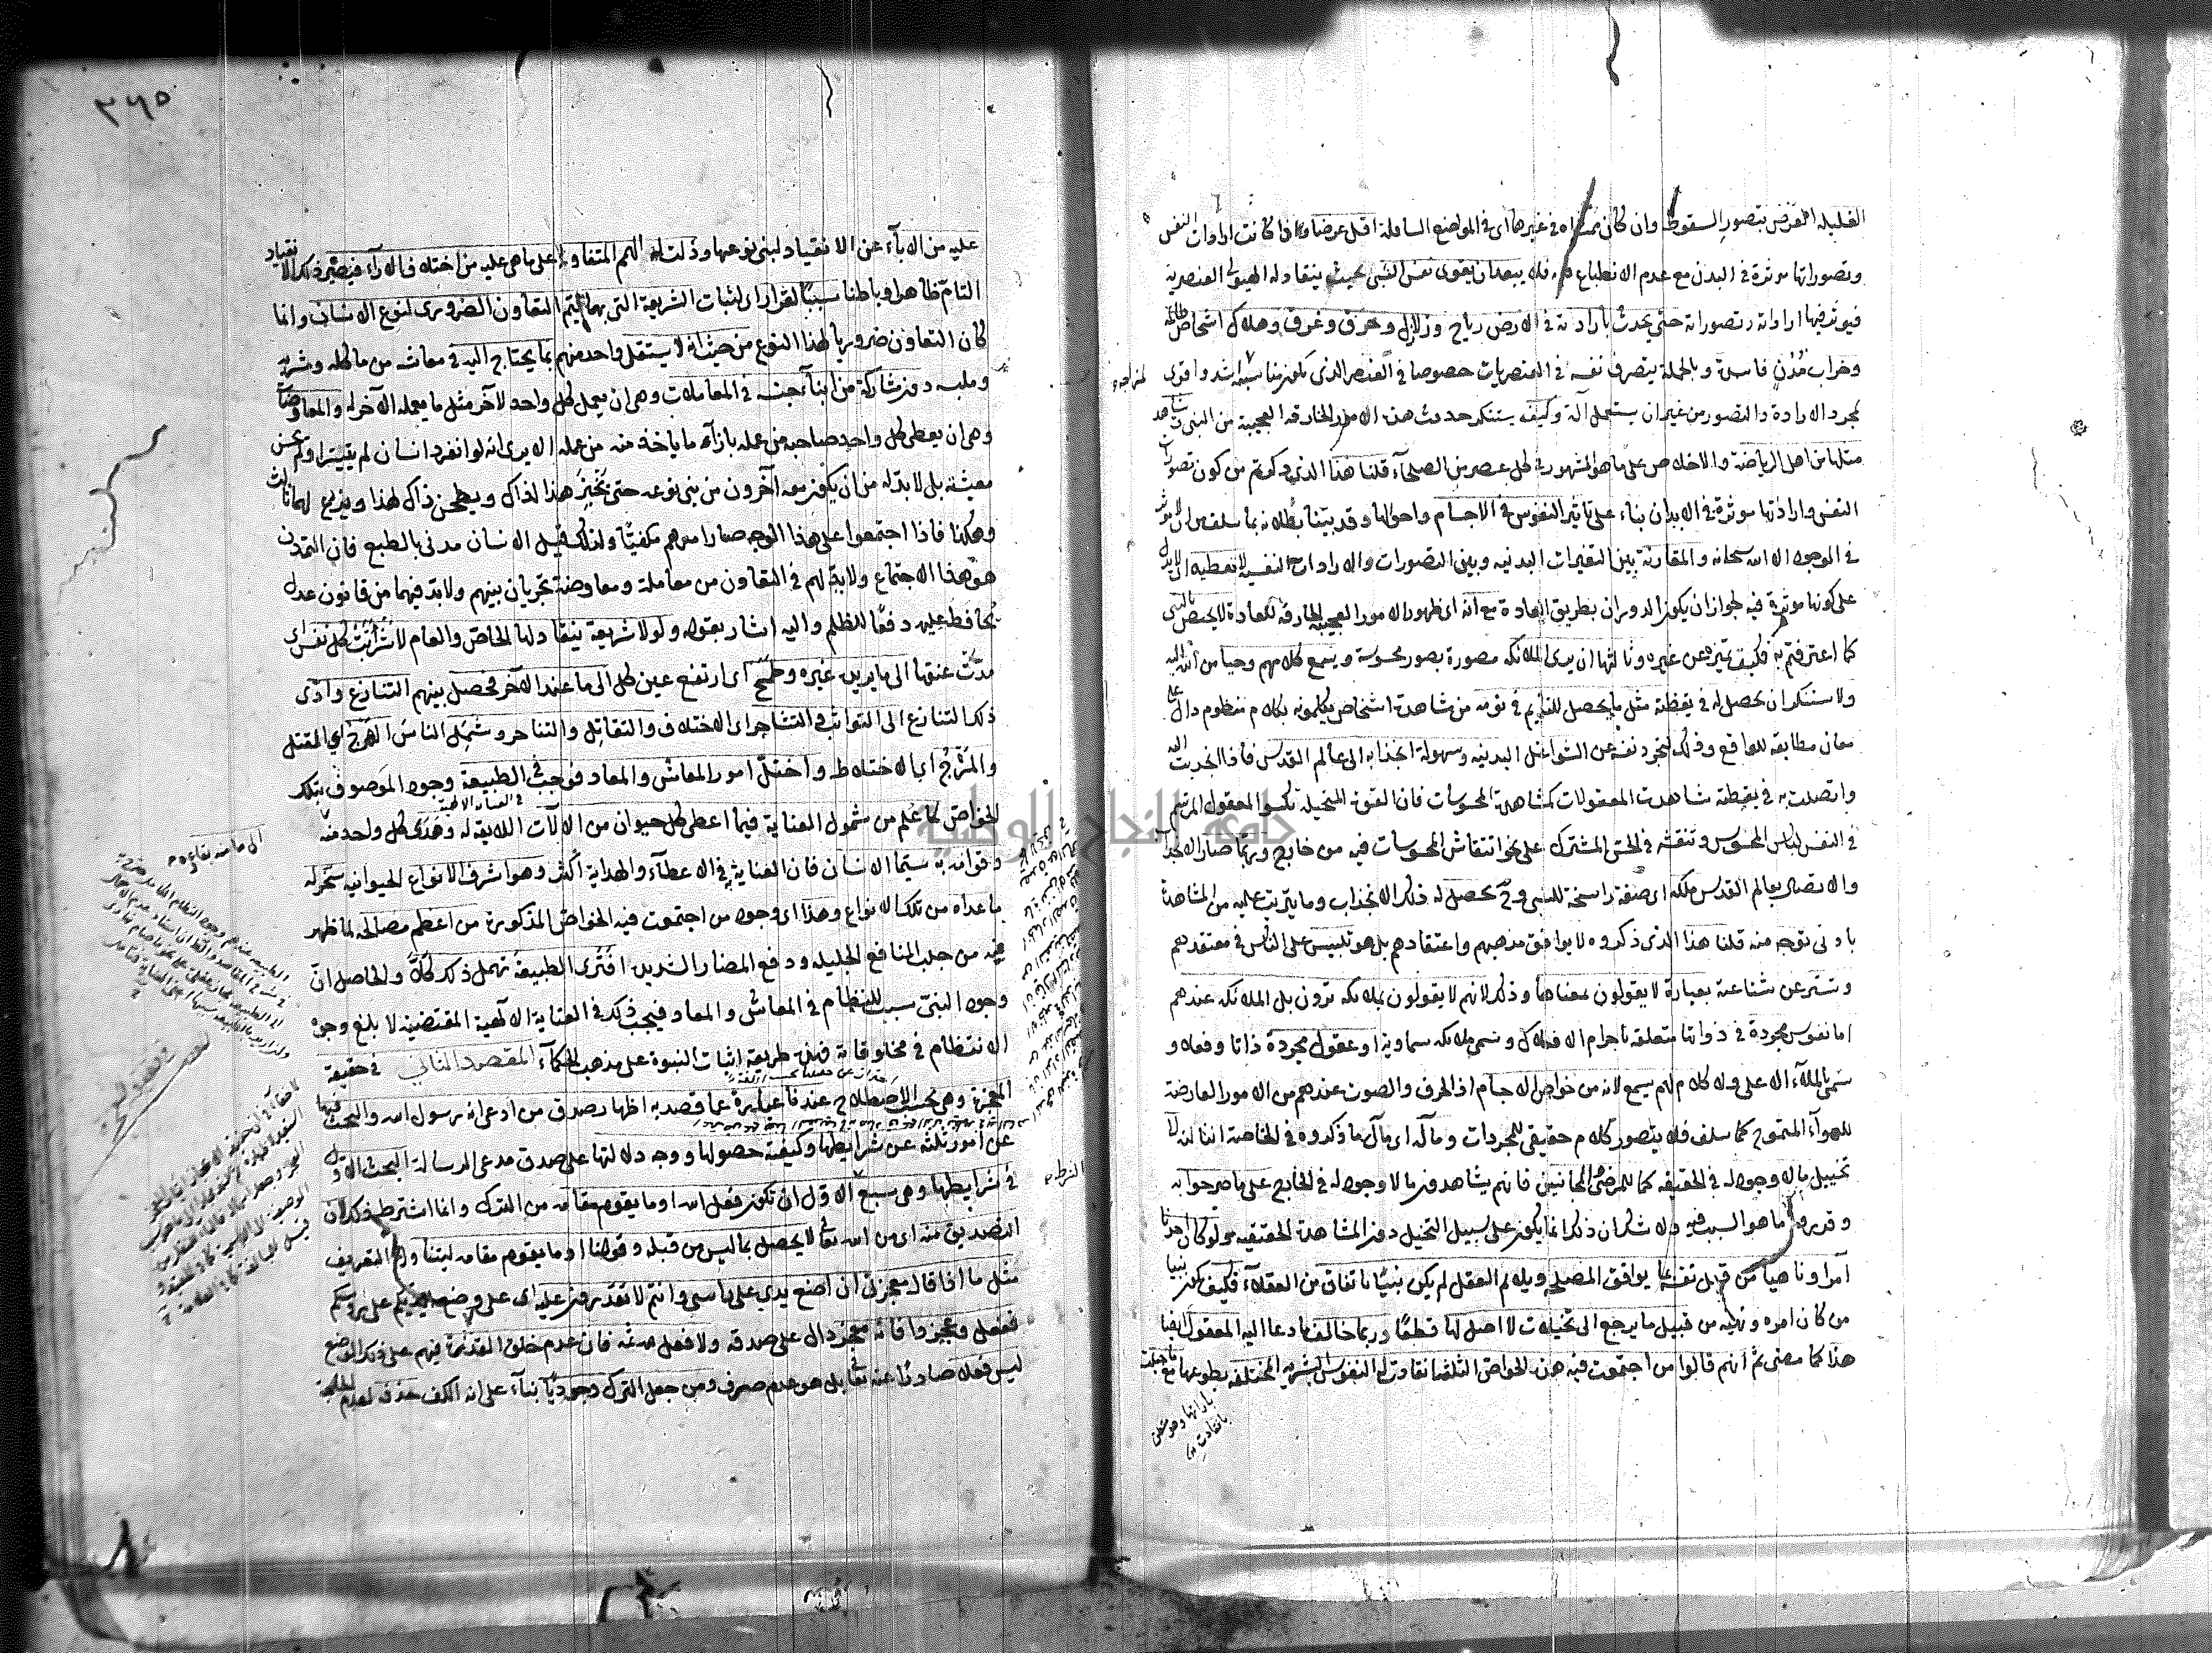 القليلة العرض بتصور السقوط وان كان ممشاه في غيرها اى في المواضع السافلة اقل عرضا واذا كانت ارادات النفس
وتصوراتها مؤثرة في البدن مع عدم الانطباع فيه فلا يبعد ان يقوى نفس النبي بحيث ينقاد له الهيولى العنصرية
فيؤثر فيها اراداته وتصوراته حتى يحدث بارادته في الارض رياح وزلازل وحرق وغرق وهلاك اشخاص ظالمة
وخراب مُدُنٍ فاسدة وبالجملة يتصرف نفسه في العنصريات خصوصا في العنصر الذى يكون مناسبته اشد واقوى
لمزاجه
بمجرد الارادة والتصور من غير ان يستعمل آلة وكيف يستنكر حدوث هذه الامور الخارقة العجيبة من النبى وتشاهد
مثلها من اهل الرياضة والاخلاص على ما هو المشهور في كل عصر من الصلحآء قلنا هذا الذى ذكرتم من كون تصورات
النفس واراداتها مؤثرة في الابدان بناء على تاثير النفوس في الاجسام واحوالها وقد بيّنا بطلانه بما سلف من ان لا مؤثر
في الوجود الا الله سبحانه والمقارنة بين التغيرات البدنية وبين التصورات والارادات النفسية لا يعطيه اى لا يدل
على كونها مؤثرة فيه لجواز ان يكون الدوران بطريق العادة مع انه اى ظهور الامور العجيبة الخارقة للعادة لا يختص بالنبى
كما اعترفتم به فكيف يميزه عن غيره وثالثها ان يرى الملائكة مصورة بصور محسوسة ويسمع كلامهم وحيا من الله اليه
ولا يستنكر ان يحصل له في يقظته مثل ما يحصل للنائم في نومه من مشاهدة اشخاص يكلمونه بكلام منظوم دال على
معان مطابقة للواقع وذلك لتجرد نفسه عن الشواغل البدنية وسهولة انجذابه الى عالم القدس فاذا انجذبت اليه
واتصلت به في يقظته شاهدت المعقولات كمشاهدة المحسوسات فان القوة المتخيلة تكسو المعقول المرتسم
في النفس لباس المحسوس وتنقشه في الحس المشترك على نحو انتقاش المحسوسات فيه من خارج وربما صار الانجذاب
والاتصال بعالم القدس ملكة اى صفة راسخة للنبى وح يحصل له ذلك الانجذاب وما يترتب عليه من المشاهدة
بادنى توجه منه قلنا هذا الذى ذكروه لا يوافق مذهبهم واعتقادهم بل هو تلبيس على الناس في معتقدهم
وتستر عن شناعته بعبارة لا يقولون بمعناها وذلك لانهم لا يقولون بملائكة تُرون بل الملائكة عندهم
اما نفوس مجردة في ذواتها متعلقة باجرام الافلاك وتسمى ملائكة سماوية او عقول مجردة ذاتا وفعلا و
تسمى بالملآء الاعلى ولا كلام لهم يسمع لانه من خواص الاجسام اذ الحرف والصوت عندهم من الامور العارضة
للهوآء المتموج كما سلف فلا يتصور كلام حقيقى للمجردات ومآله اى مآل ما ذكروه في الخاصة الثالثة الى
تخييل ما لا وجود له في الحقيقة كما للمرضى والمجانين فانهم يشاهدون ما لا وجود له في الخارج على ما صرحوا به
وقرروا ما هو السبب فيه ولا شك ان ذلك انما يكون على سبيل التخيل دون المشاهدة الحقيقية ولو كان احدنا
آمرا وناهيا من قِبل نفسه بما يوافق المصلحة ويلائم العقل لم يكن نبيّا باتفاق من العقلآء فكيف يكون نبيا
من كان امره ونهيه من قبيل ما يرجع الى تخيلات لا اصل لها قطعًا وربما خالف ما دعا اليه المعقول ايضا
هذا كما مضى ثم انهم قالوا من اجتمعت فيه هذه الخواص الثلث انقادت له النفوس البشرية المختلفة بطوعها مع ما جبلت
عليه من الابآء عن الانقياد لبنى نوعها وذلت له الهمم المتفاوتة على ما هى عليه من اختلاف الآرآء فيصير ذلك الانقياد
التامّ ظاهرا وباطنا سببًا لقرار اى لثبات الشريعة التى بها يتم التعاون الضرورى لنوع الانسان وانما
كان التعاون ضروريا لهذا النوع من حيث انه لا يستقل واحد منهم بما يحتاج اليه في معاشه من مأكله ومشربه
وملبسه دون مشاركة من ابنآء جنسه في المعاملات وهى ان يعمل كل واحد لآخر مثل ما يعمله الآخر له والمعاوضات
وهى ان يعطى كل واحد صاحبه من عمله بازآء ما ياخذه منه من عمله الا يرى انه لو انفرد انسان لم يتيسر له ولم يحسن
معيشته بل لا بد له من ان يكون معه آخرون من بنى نوعه حتى يَخْبِزَ هذا لذاك ويطحن ذاك لهذا ويزرع لهما ثالث
وهكذا فاذا اجتمعوا على هذا الوجه صار امرهم مكفيًّا ولذلك قيل الانسان مدنى بالطبع فان التمدن
هو هذا الاجتماع ولا بد لهم في التعاون من معاملة ومعاوضة تجريان بينهم ولا بد فيهما من قانون عدل
يحافظ عليه دفعًا للظلم واليه اشار بقوله ولولا شريعة ينقاد لها الخاص والعام لاشرأبّت كل نفس اى
مدّت عنقها الى ما يريده غيره وطمح اى ارتفع عين كل الى ما عند الآخر فحصل بينهم التنازع وادّى
ذلك التنازع الى التواثب والتشاجر اى الاختلاف والتقاتل والتناحر وشمل الناسَ الهَرْجُ اى القتل
والمَرْجُ اى الاختلاط واختلّ امور المعاش والمعاد فوجب في الطبيعة وجود الموصوف بتلك
الخواص كما علم من شمول العناية فيما اعطى كل حيوان من الآلات اللايقة له وهَدَى كل واحد منه
الى ما منه بقاؤه
وقوامه به سيّما الانسان فان العناية في الاعطآء والهداية اكثر وهو اشرف الانواع الحيوانية سخر له
ما عداه من تلك الانواع وهذا اى وجود من اجتمعت فيه الخواص المذكورة من اعظم مصالحه لما ظهر
فيه من جلب المنافع الجليلة ودفع المضار الشديدة افترى الطبيعة تهمل ذلك كلّا والحاصل انّ
وجود النبىّ سبب للنظام في المعاش والمعاد فيجب ذلك في العناية الالهية المقتضية لابلغ وجوه
الانتظام في مخلوقاته فهذه طريقة اثبات النبوة على مذهب الحكمآء المقصد الثانى في حقيقة
المعجزة وهى بحسب الاصطلاح عندنا عبارة عما قصد به اظهار صدق من ادعى انه رسول الله والبحث فيها
عن امور ثلثة عن شرايطها وكيفية حصولها ووجه دلالتها على صدق مدعى الرسالة البحث الاول
في شرايطها وهى سبع الاول ان تكون فعل الله او ما يقوم مقامه من التروك وانما اشترط ذلك لان
التصديق منه اى من الله تعالى لا يحصل بما ليس من قبله وقولنا او ما يقوم مقامه ليتناول التعريف
مثل ما اذا قال معجزتى ان اضع يدى على راسى وانتم لا تقدرون عليه اى على وضع ايديكم على رؤسكم
ففعل وعجزوا فانه معجز دال على صدقه ولا فعل لله ثمة فان عدم خلق القدرة فيهم على ذلك الوضع
ليس فعلا صادرًا عنه تعالى بل هو عدم صرف ومن جعل الترك وجوديًّا بنآء على انه الكف حذفه لعدم الحاجة
٣٦٥